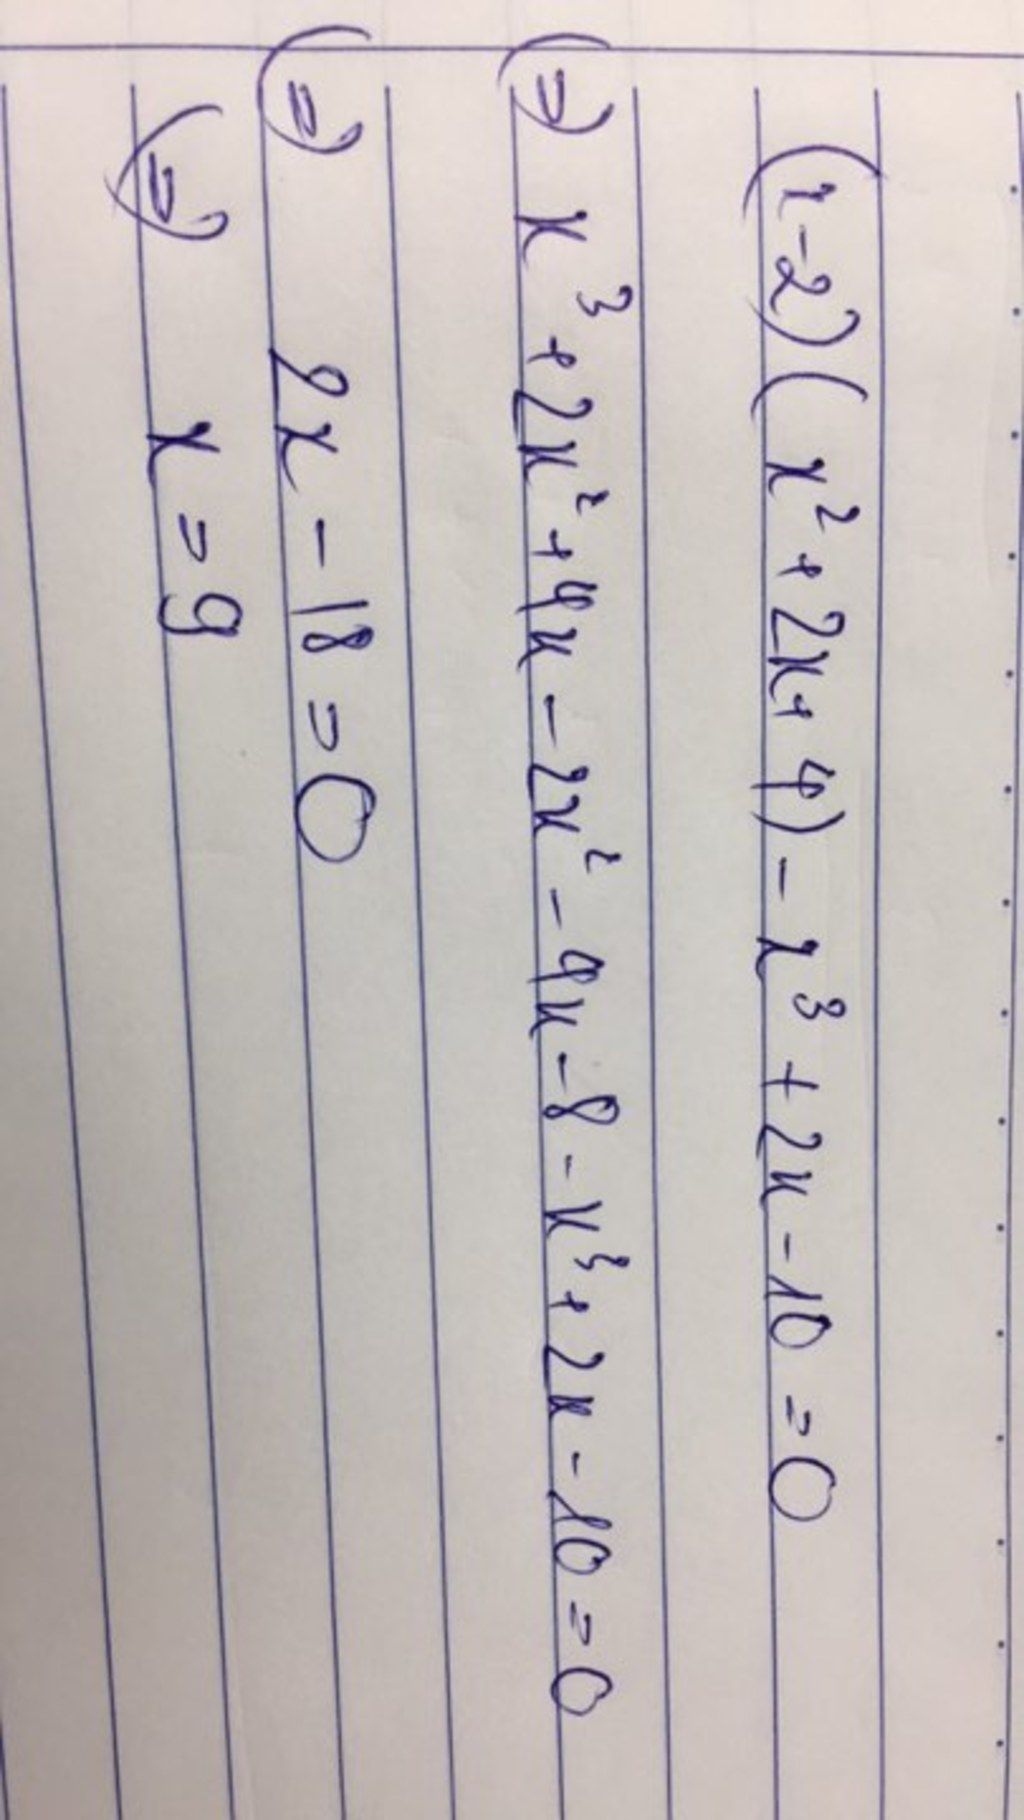 (x-2)(x²+2x+4)-x³+2x-10=0
(=) x³+2x²+4x-2x²-4x-8-x³+2x-10=0
(=) 2x-18=0
(=) x=9